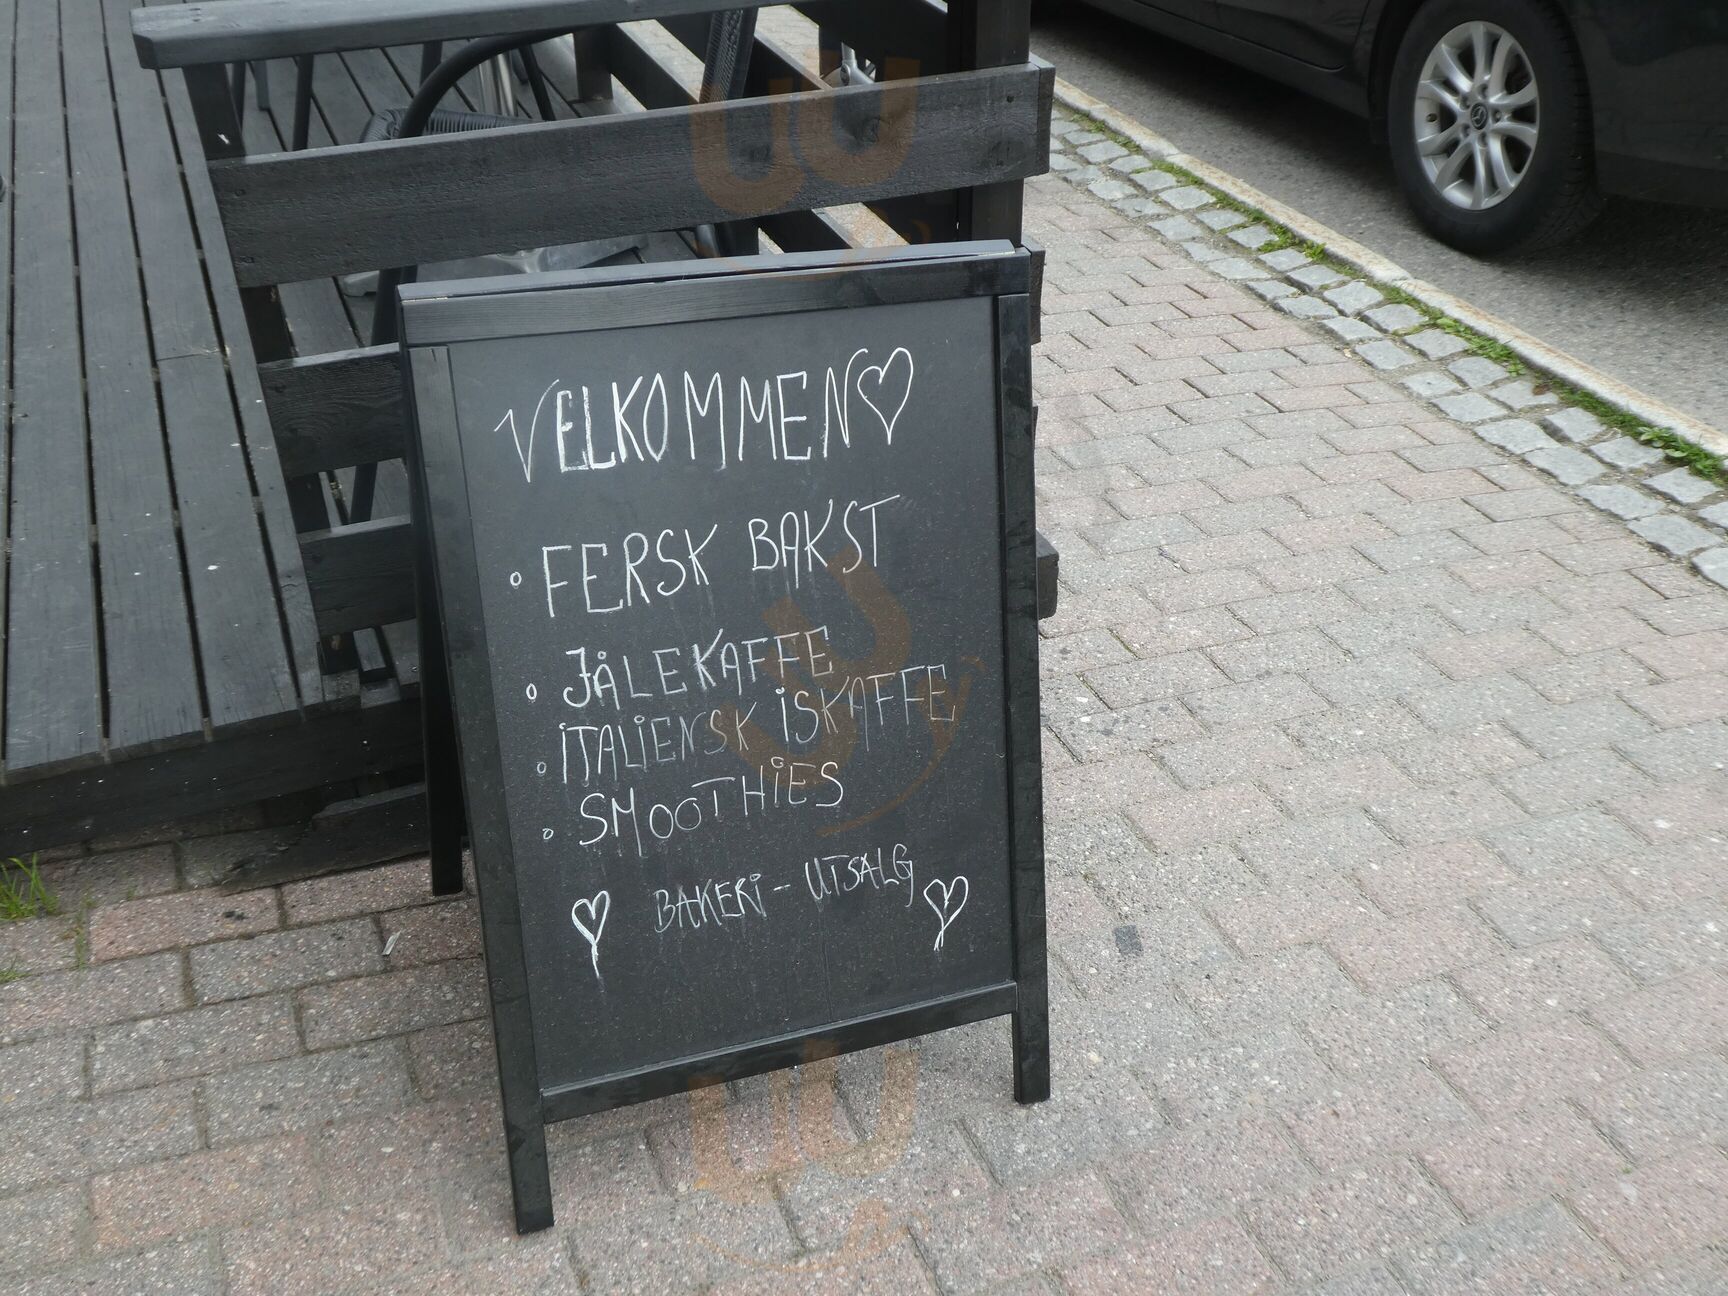 VELKOMMEN♡
° FERSK BAKST
° JÅLEKAFFE
° ITALIENSK ISKAFFE
° SMOOTHIES
♡ BAKERI - UTSALG ♡